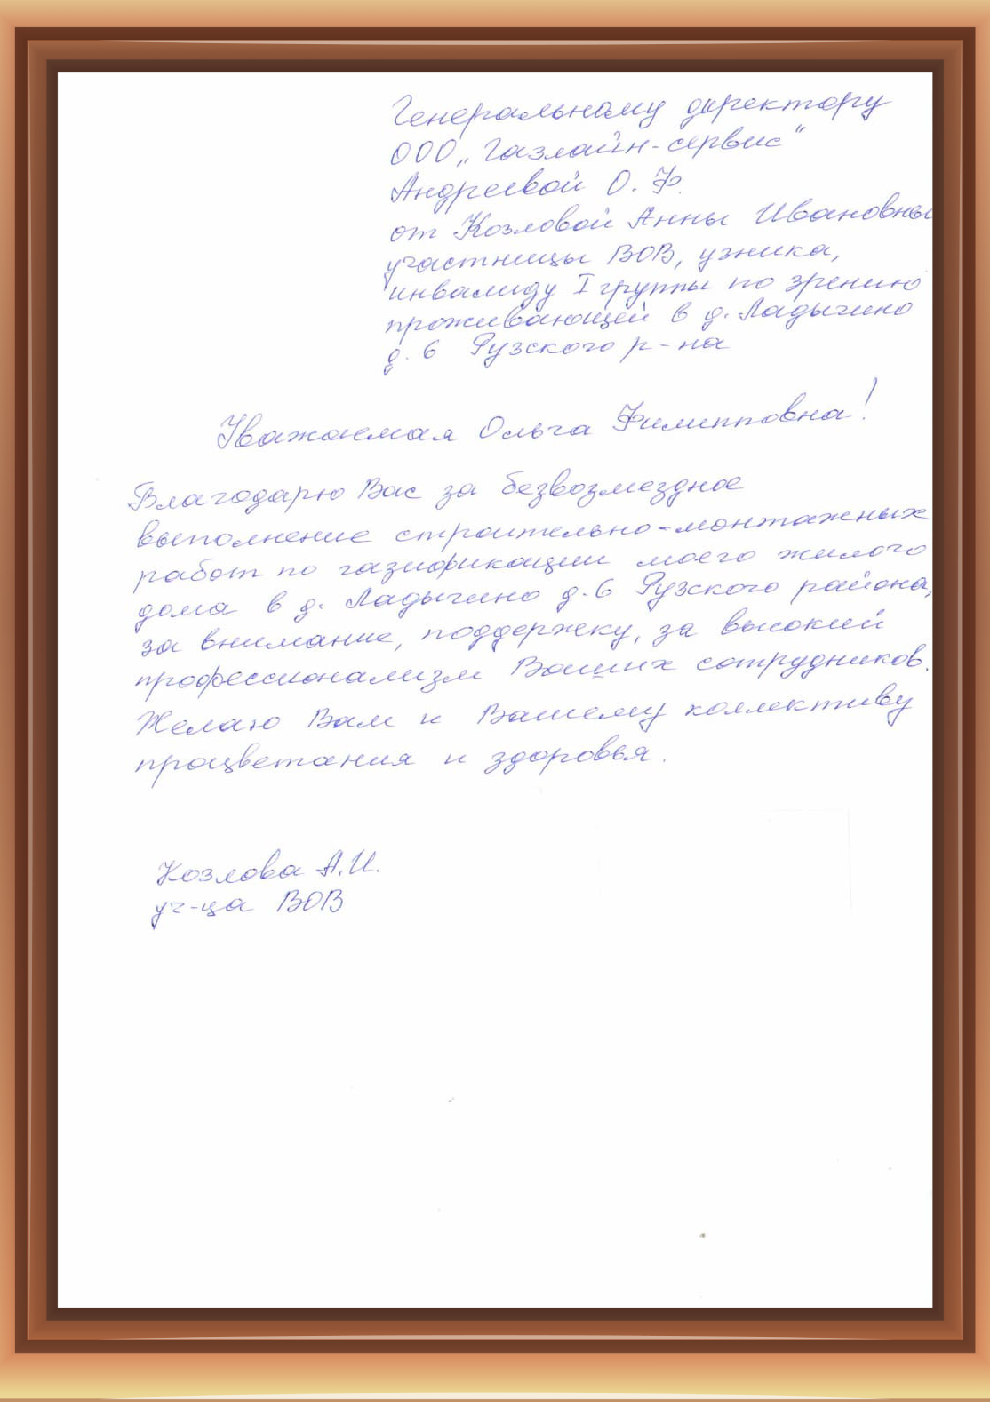 Генеральному директору
ООО „Газлайн-сервис“
Андреевой О. Ф.
от Козловой Анны Ивановны
участницы ВОВ, узника,
инвалиду I группы по зрению
проживающей в д. Ладычино
д. 6 Рузского р-на
Уважаемая Ольга Филипповна!
Благодарю Вас за безвозмездное
выполнение строительно-монтажных
работ по газификации моего жилого
дома в д. Ладычино д. 6 Рузского района,
за внимание, поддержку, за высокий
профессионализм Ваших сотрудников.
Желаю Вам и Вашему коллективу
процветания и здоровья.
Козлова А.И.
уч-ца ВОВ